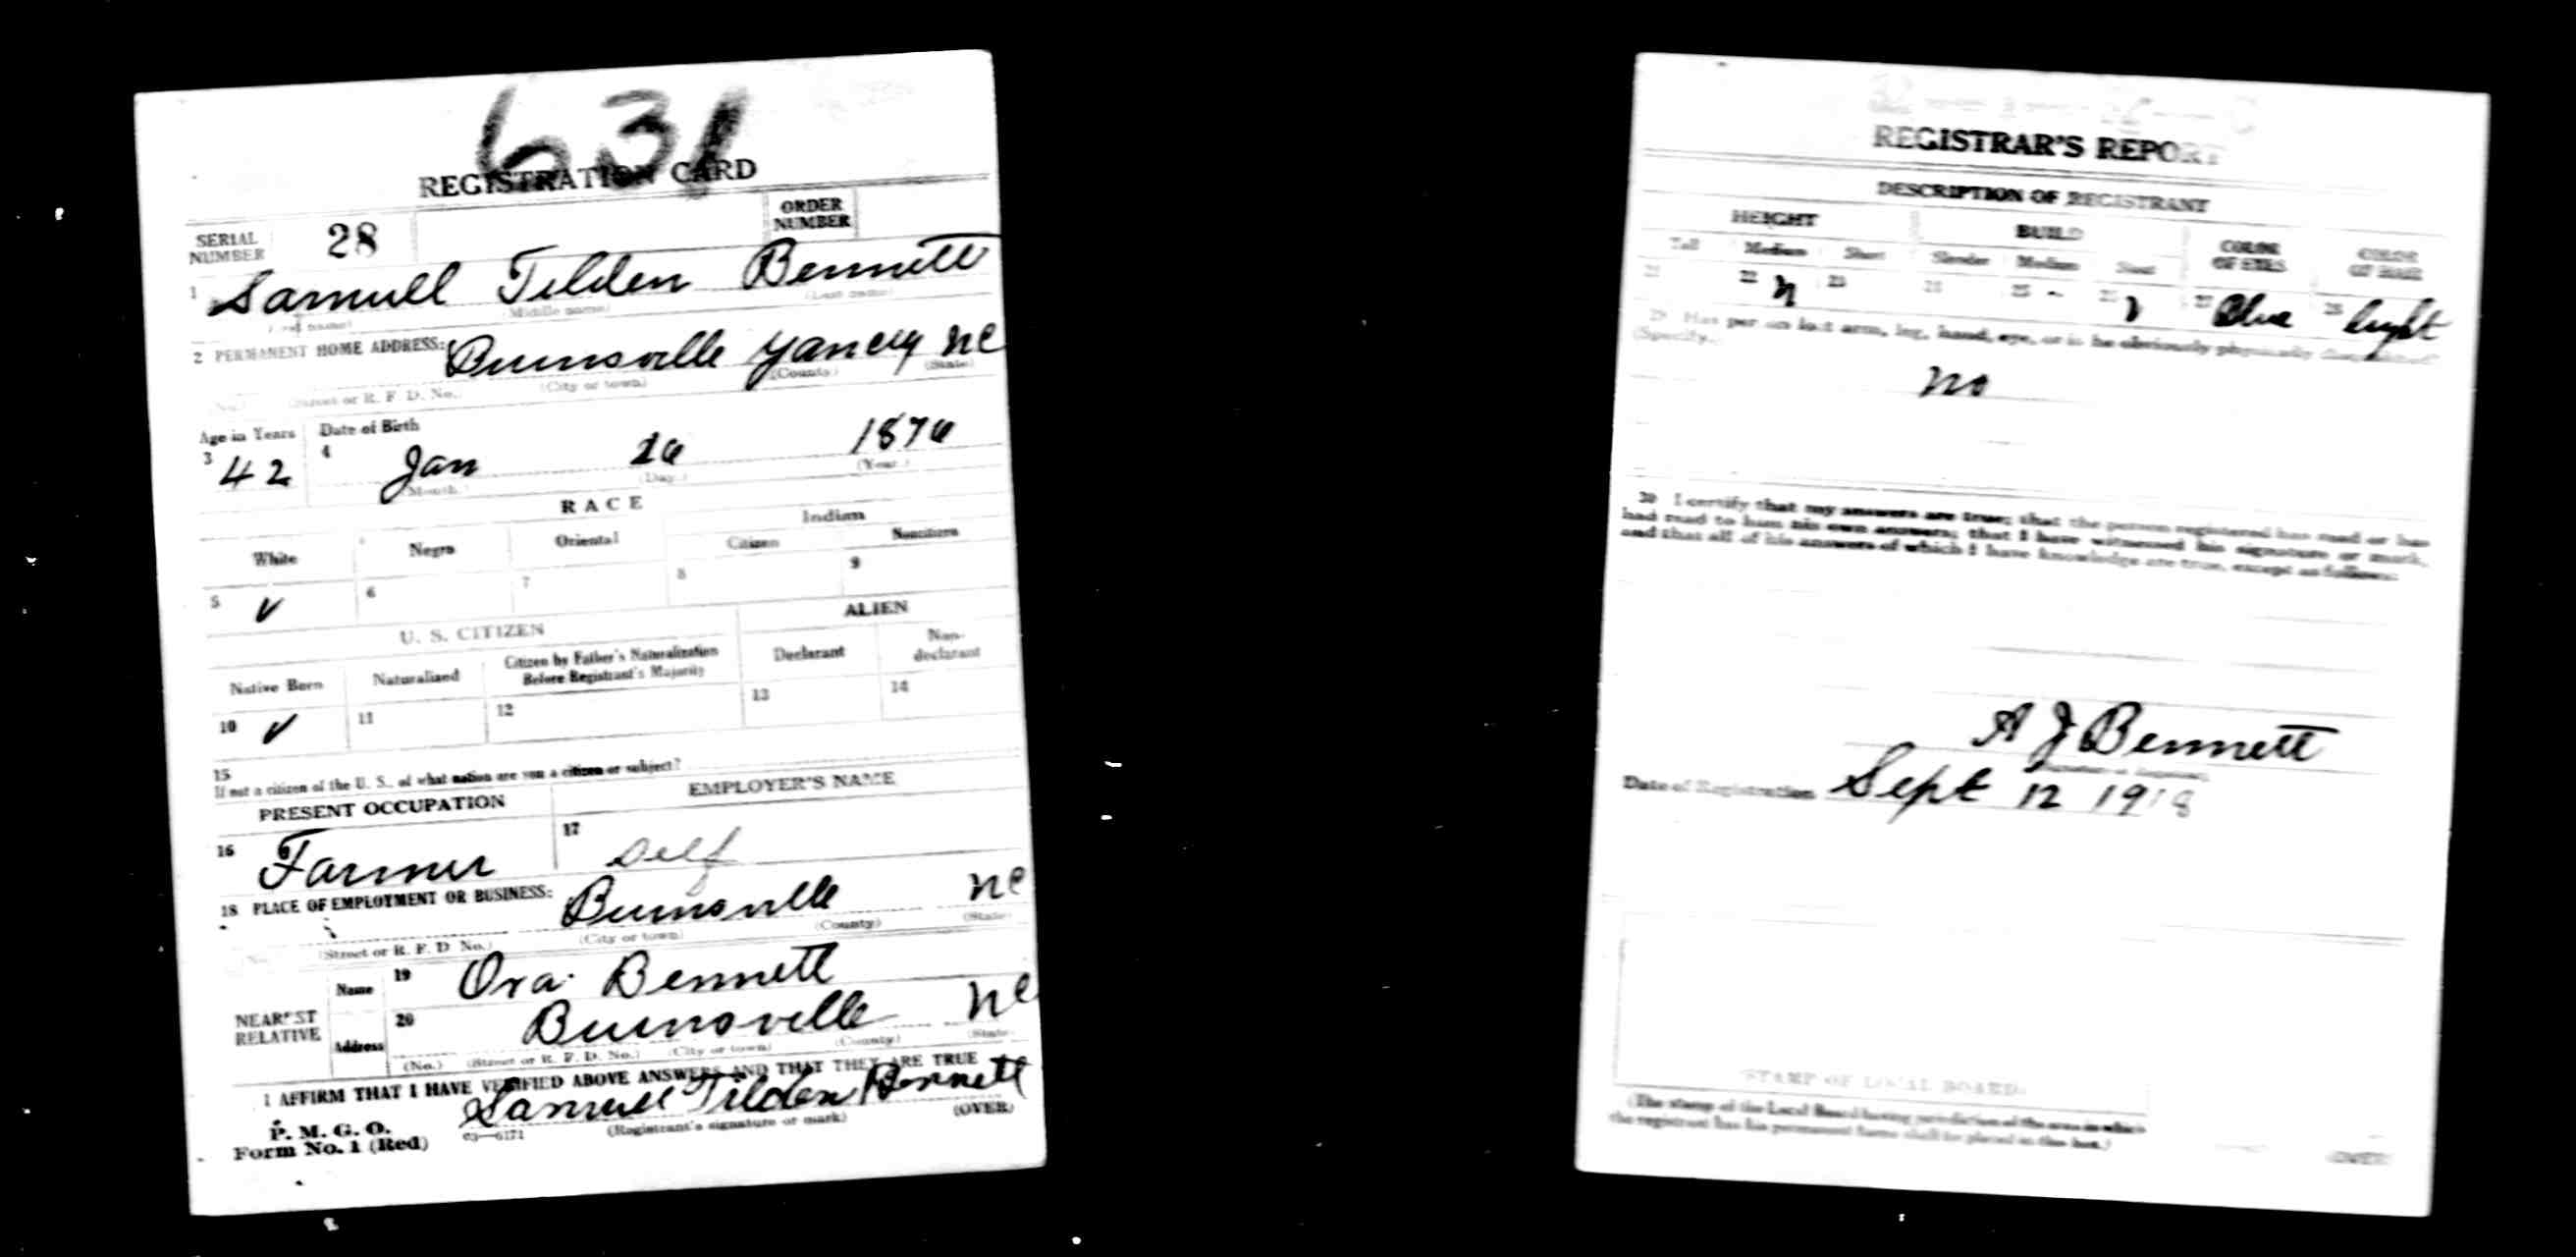 631
REGISTRATION CARD
SERIAL NUMBER 28 ORDER NUMBER
1 Samuel Tilden Bennett
(First name) (Middle name) (Last name)
2 PERMANENT HOME ADDRESS: Burnsville Yancey NC
(No.) (Street or R. F. D. No.) (City or town) (County) (State)
Age in Years Date of Birth
3 42 4 Jan 26 1876
(Month.) (Day.) (Year.)
RACE
White Negro Oriental Indian
Citizen Noncitizen
5 ✓ 6 7 8 9
U. S. CITIZEN ALIEN
Native Born Naturalized Citizen by Father's Naturalization Before Registrant's Majority Declarant Non-declarant
10 ✓ 11 12 13 14
15
If not a citizen of the U. S., of what nation are you a citizen or subject?
PRESENT OCCUPATION EMPLOYER'S NAME
16 Farmer 17 Self
18 PLACE OF EMPLOYMENT OR BUSINESS: Burnsville NC
(No.) (Street or R. F. D. No.) (City or town) (County) (State)
NEAREST RELATIVE
Name 19 Ora Bennett
Address 20 Burnsville NC
(No.) (Street or R. F. D. No.) (City or town) (County) (State)
I AFFIRM THAT I HAVE VERIFIED ABOVE ANSWERS AND THAT THEY ARE TRUE
P. M. G. O.
Form No. 1 (Red) Samuel Tilden Bennett
03—6171 (Registrant's signature or mark) (OVER)
REGISTRAR'S REPORT
DESCRIPTION OF REGISTRANT
HEIGHT BUILD COLOR OF EYES COLOR OF HAIR
Tall Medium Short Slender Medium Stout
21 22 23 24 25 26 27 Blue 28 Light
29 Has person lost arm, leg, hand, eye, or is he obviously physically disqualified?
(Specify.)
no
30 I certify that my answers are true; that the person registered has read or has
had read to him his own answers; that I have witnessed his signature or mark,
and that all of his answers of which I have knowledge are true, except as follows:
A J Bennett
Date of Registration Sept 12 1918
STAMP OF LOCAL BOARD
(The stamp of the Local Board having jurisdiction of the area in which
the registrant has his permanent home shall be placed in this box.)
(OVER)